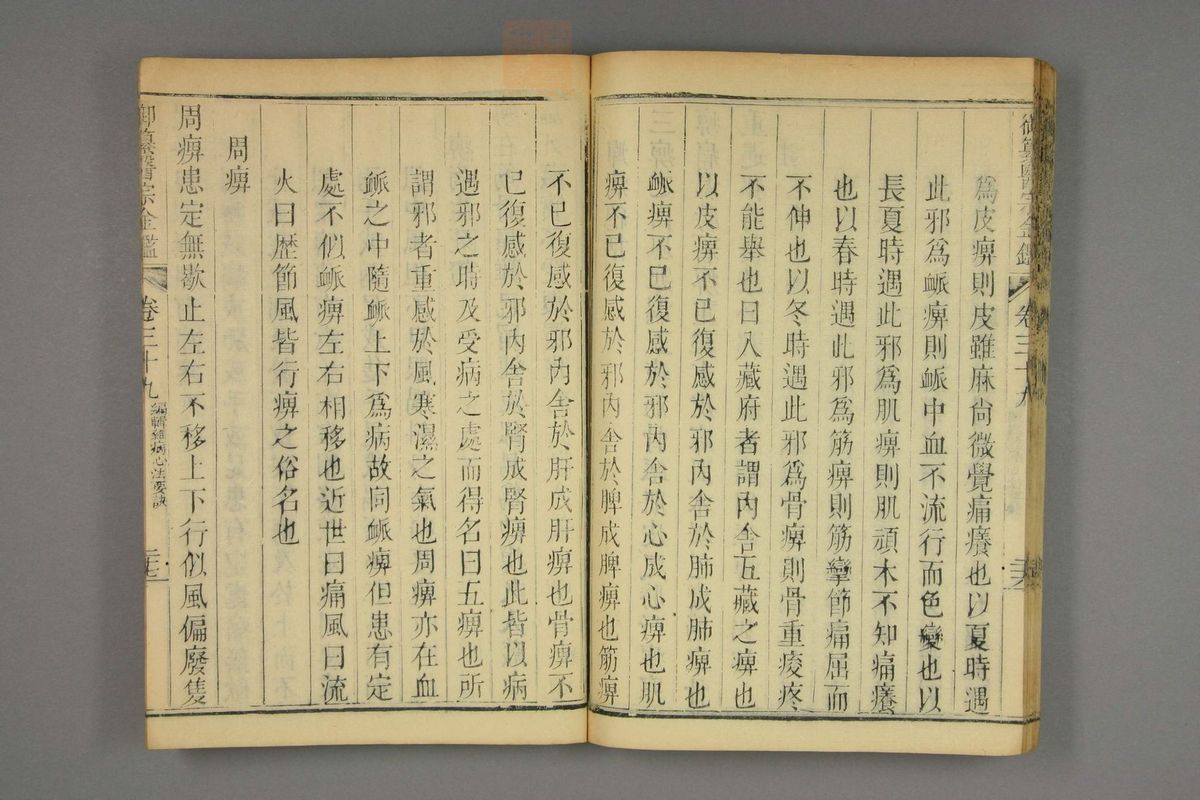 御纂醫宗金鑑 卷三十九
爲皮痹則皮雖麻尙微覺痛癢也以夏時遇
此邪爲衇痹則衇中血不流行而色變也以
長夏時遇此邪爲肌痹則肌頑木不知痛癢
也以春時遇此邪爲筋痹則筋攣節痛屈而
不伸也以冬時遇此邪爲骨痹則骨重痠疼
不能舉也曰入藏府者謂內舍五藏之痹也
以皮痹不已復感於邪內舍於肺成肺痹也
衇痹不已復感於邪內舍於心成心痹也肌
痹不已復感於邪內舍於脾成脾痹也筋痹
不已復感於邪內舍於肝成肝痹也骨痹不
已復感於邪內舍於腎成腎痹也此皆以病
遇邪之時及受病之處而得名曰五痹也所
謂邪者重感於風寒濕之氣也周痹亦在血
衇之中隨衇上下爲病故同衇痹但患有定
處不似衇痹左右相移也近世曰痛風曰流
火曰歷節風皆行痹之俗名也
周痹
周痹患定無歇止左右不移上下行似風偏廢隻
御纂醫宗金鑑 卷三十九 編輯雜病心法要訣